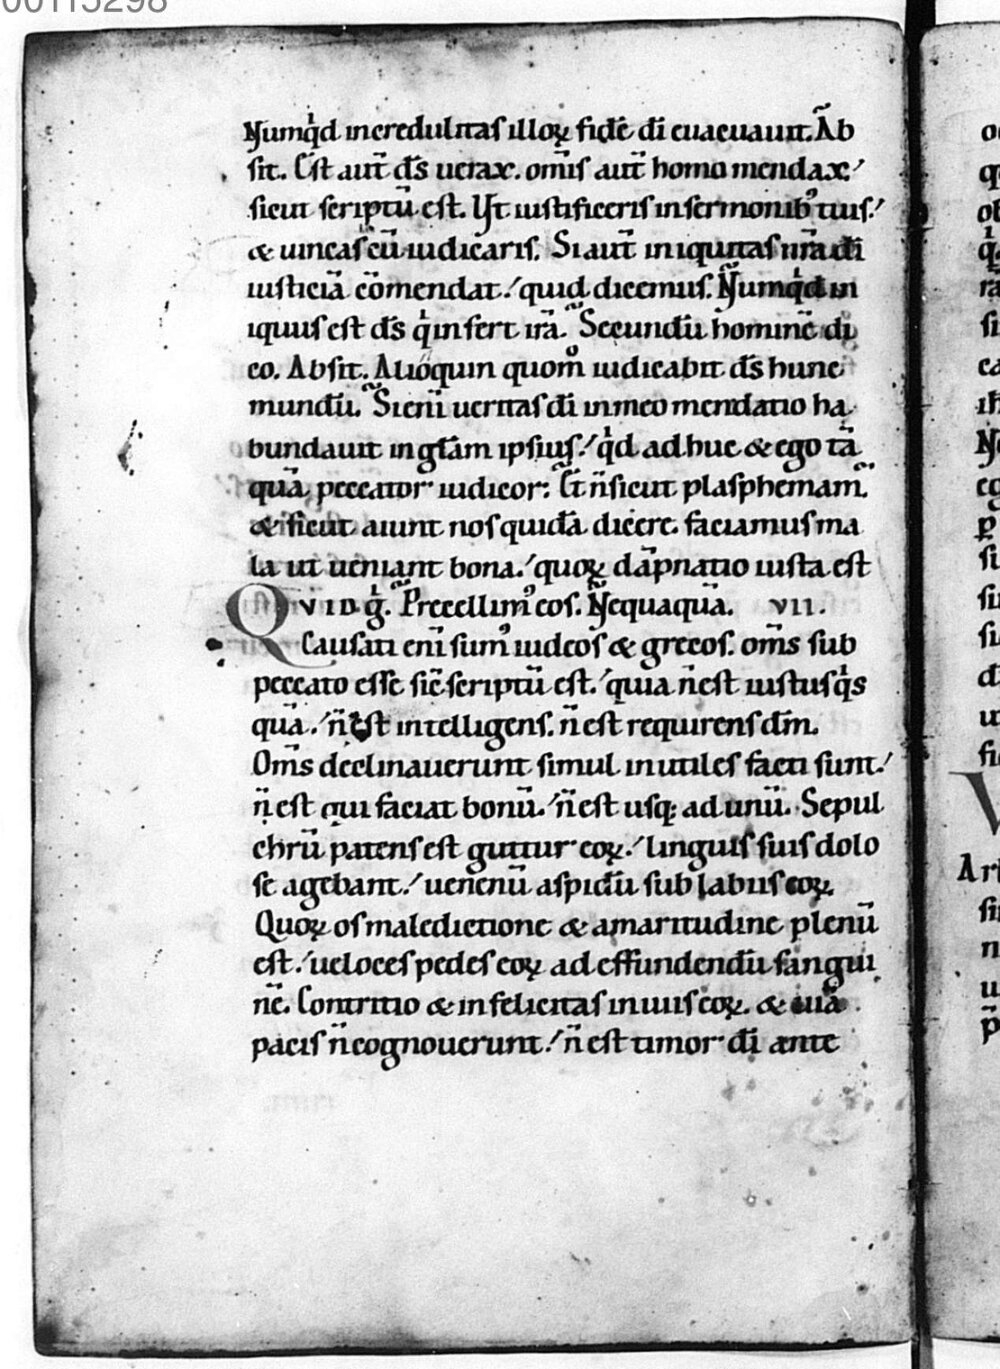 00115298
Numqͥd incredulitas illoꝝ fidē dī euacuauit. Ab
sit. Est aūt d̄s uerax. om̄is aūt homo mendax.
sicut scriptū est. Ut iustificeris in sermonib; tuis.
& uincas cū iudicaris. Si aūt iniquitas nr̄a dī
iusticiā cōmendat. quid dicemus. Numqͥd in
iquus est d̄s qͥ infert irā. Secundū hominē di
co. Absit. Alioquin quom̊ iudicabit d̄s hunc
mundū. Si enī ueritas dī in meo mendatio ha
bundauit in gl̄am ipsius. qͥd adhuc & ego tā
quā peccator iudicor. Et n̄ sicut plasphemam̄
& sicut aiunt nos quidā dicere. faciamus ma
la ut ueniant bona. quoꝝ dāpnatio iusta est
QVID gͥ. Precellim᾽ eos. Nequaquā. VII.
Causati enī sum᾽ iudeos & grecos. om̄s sub
peccato esse sic̄ scriptū est. quia n̄ est iustus qͥs
quā. n̄ est intelligens. n̄ est requirens dm̄.
Om̄s declinauerunt simul inutiles facti sunt.
n̄ est qui faciat bonū. n̄ est usq; ad unū. Sepul
chrū patens est guttur eoꝝ. linguis suis dolo
se agebant. uenenū aspidū sub labiis eoꝝ.
Quoꝝ os maledictione & amaritudine plenū
est. ueloces pedes eoꝝ ad effundendū sangui
nē. Contritio & infelicitas in uiis eoꝝ. & uiā
pacis n̄ cognouerunt. n̄ est timor dī ante